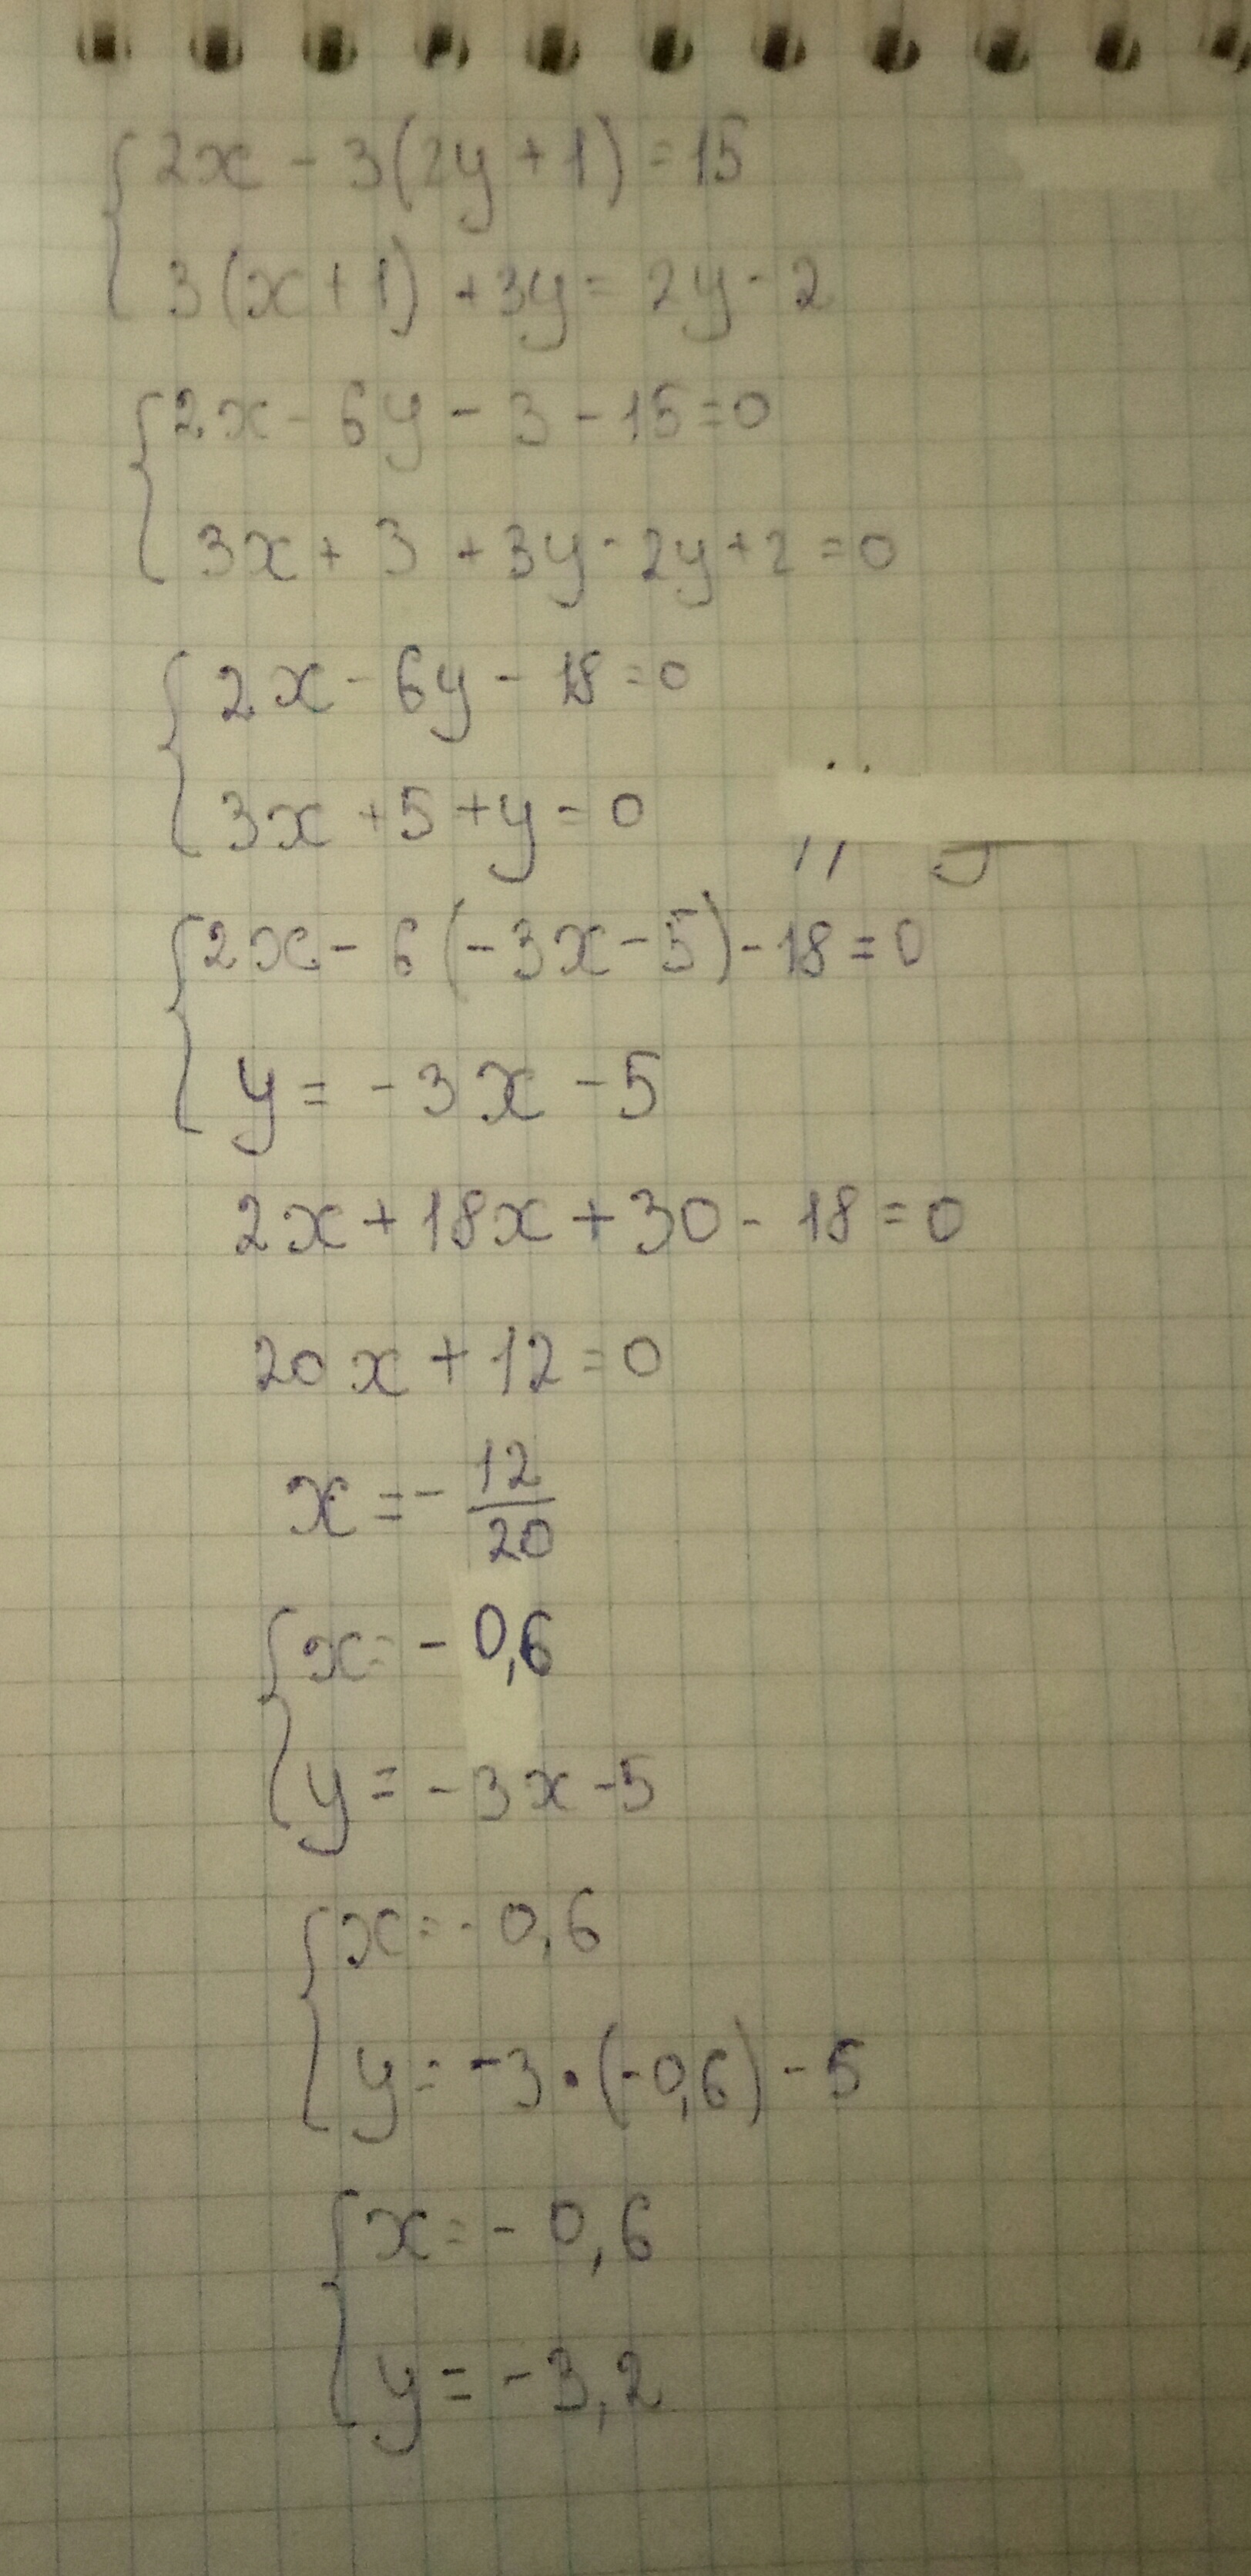 2x - 3(2y + 1) = 15
3(x + 1) + 3y = 2y - 2
2x - 6y - 3 - 15 = 0
3x + 3 + 3y - 2y + 2 = 0
2x - 6y - 18 = 0
3x + 5 + y = 0
2x - 6(-3x - 5) - 18 = 0
y = -3x - 5
2x + 18x + 30 - 18 = 0
20x + 12 = 0
x = - 12/20
x = - 0,6
y = -3x - 5
x = - 0,6
y = -3 · (-0,6) - 5
x = - 0,6
y = -3,2